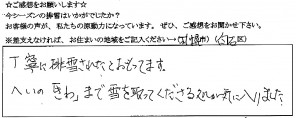 ☆ご感想をお願いします☆
今シーズンの排雪はいかがでしたか?
お客様の声が、私たちの原動力になっています。ぜひ、ご感想をお聞かせ下さい。
※差支えなければ、お住まいの地域をご記入ください→(札幌市)(白石区)
丁寧に排雪されたとおもってます。
へいの「きわ」まで雪を取ってくださる所が気に入りました!